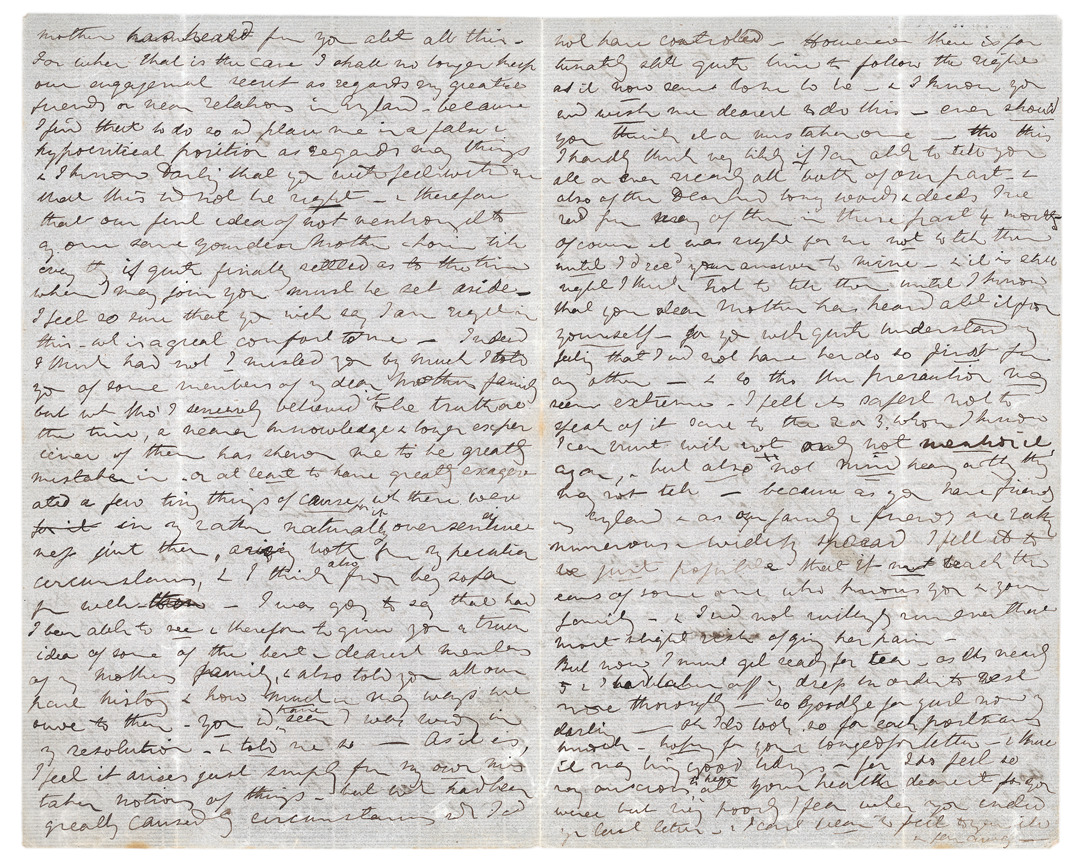 mother has heard fm you abt all this -
For when that is the case I shall no longer keep
our engagement secret as regards my greatest
friends or near relations in England - because
I find that to do so wd place me in a false &
hypocritical position as regards many things
& I know Darling that you will feel with me
that this wd not be right - & therefore
that our first idea of not mentiong it to
any one save your dear Mother & mine till
every thg is quite finally settled as to the time
when I may join you must be set aside -
I feel so sure that you will say I am right in
this - wh is a great comfort to me - Indeed
I think had not I misled you by much I told
you of some members of my dear Mother's family
but wh tho' I sincerely believed it to be truth at
the time, a nearer knowledge & longer exper
ience of them has shewn me to be greatly
mistaken in - or at least to have greatly exagger
ated a few tiny things of course, wh there were
in my rather naturally oversensitive
ness just then, arising both fm my peculiar
circumstances, & I think also from beg so far
fm well - I was gog to say that had
I been able to see & therefore to give you a truer
idea of some of the best & dearest members
of my mother's family, & also told you all our
past history & how much in many ways we
owe to them - you wd have seen I was wrong in
my resolution - & told me so - As it is,
I feel it arises just simply fm my own mis
taken notions of things - but wh had been
greatly caused by circumstances wh I cd
not have controlled - However there is for
tunately still quite time to follow the right
as it now seems to me to be - & I know you
wd wish me dearest to do this - even should
you think it a mistaken one - tho this
I hardly think very likely if I am able to tell you
all or even nearly all both of our past - &
also of the Dear kind long words & deeds I've
recd fm many of them in these past 4 months
Of course it was right for me not to tell them
until I'd recd your answer to mine - & it is still
right I think not to tell them until I know
that your dear Mother has heard all it fm
yourself - for you will quite understand my
feelg that I wd not have her do so first fm
any other - & so tho the precaution may
seem extreme - I felt it safest not to
speak of it save to the 2 or 3, whom I know
I can trust will not only not mention it
again, - but also not mind hearg anythg they
may not tell - because as you have friends
in England & as our family & friends are rather
numerous & widely spread I felt it to
be just possible that it might reach the
ears of some one who knows you & your
family - & I wd not willingly run even the
most slight risk of givg her pain -
But now I must get ready for tea - as it's nearly
5 & I had taken off my dress in order to rest
more thoroughly - so Goodbye for just now my
darling - oh I do look so for each post now
- hopg for your longed for letter - & trust
it may bring good tidgs - for I do feel so
very anxious to hear abt your health dearest for you
were but very poorly I fear when you ended
yr last letter - & I can't bear to feel